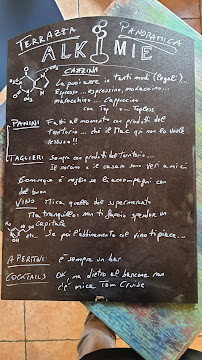 TERRAZZA PANORAMICA
ALKIMIE
CAFFEINA
La puoi avere in tanti modi (legali)...
Espresso... espressino, mokaccino...
marocchino... Cappuccino
con Top o... Topless
PANINI Fatti al momento con prodotti del
territorio... che il Mac qui non ci vuole
TAGLIERI Sempre con prodotti del territorio...
Comunque è meglio se li accompagni con
del buon
VINO Mica quello del supermercato
Ma tranquillo: non ti faccio spender un
capitale
Se poi l'abbinamento al vino ti piace...
APERITIVI è sempre un bar
COCKTAILS OK, ma dietro al bancone non
c'è mica Tom Cruise